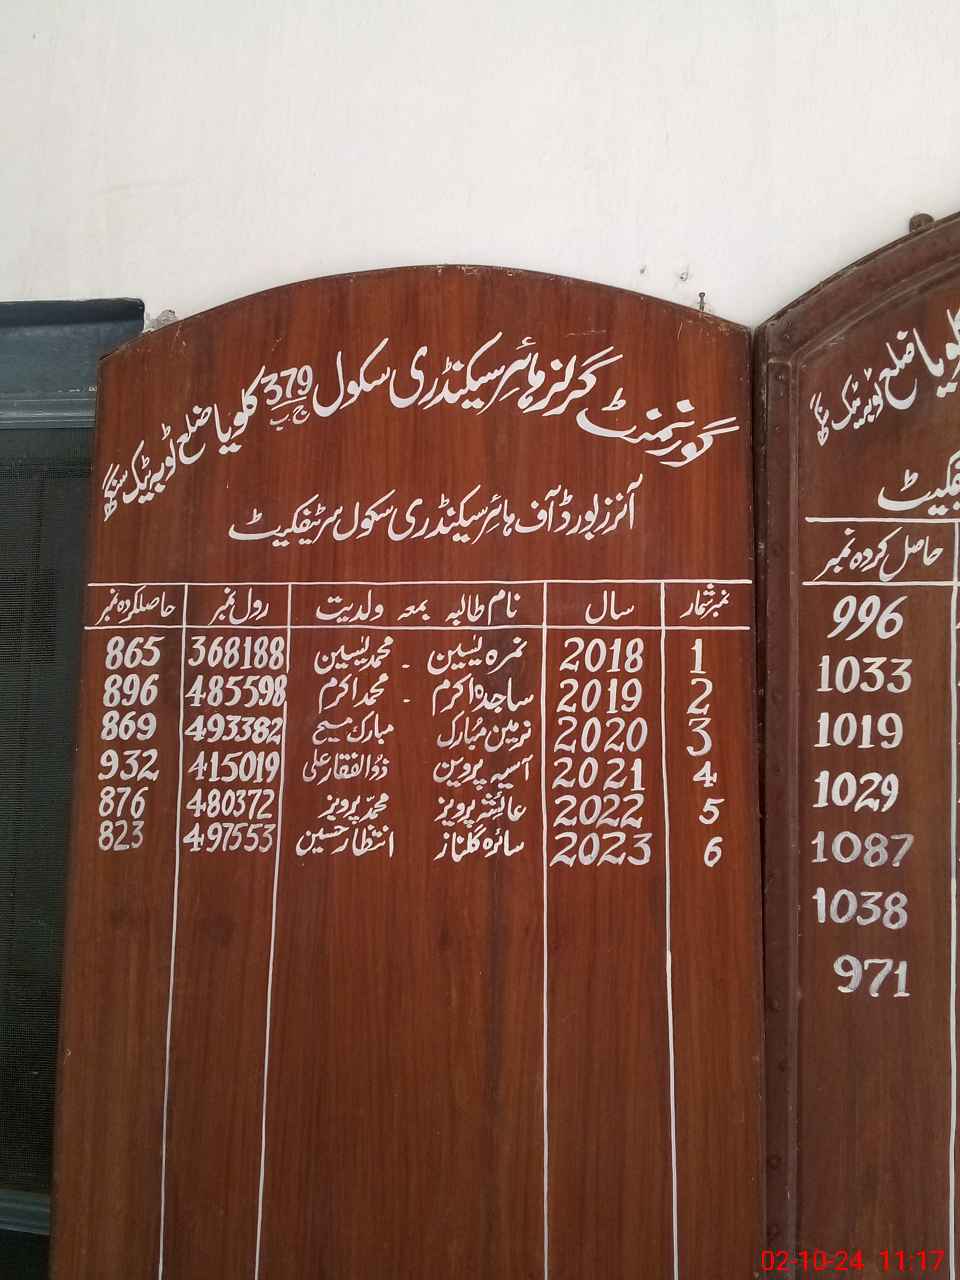 گورنمنٹ گرلز ہائر سیکنڈری سکول 379 ج ب کلویا ضلع ٹوبہ ٹیک سنگھ
آنرز بورڈ آف ہائر سیکنڈری سکول سرٹیفکیٹ
نمبر شمار سال نام طالبہ بمعہ ولدیت رول نمبر حاصلکردہ نمبر
1 2018 نمرہ یٰسین - محمد یٰسین 368188 865
2 2019 ساجدہ اکرم - محمد اکرم 485598 896
3 2020 نرمین مُبارک مبارک مسیح 493382 869
4 2021 آسیہ پروین ذوالفقار علی 415019 932
5 2022 عائشہ پرویز محمد پرویز 480372 876
6 2023 سائرہ گلناز انتظار حسین 497553 823
کلویا ضلع ٹوبہ ٹیک سنگھ
حاصل کردہ نمبر
996
1033
1019
1029
1087
1038
971
02-10-24 11:17